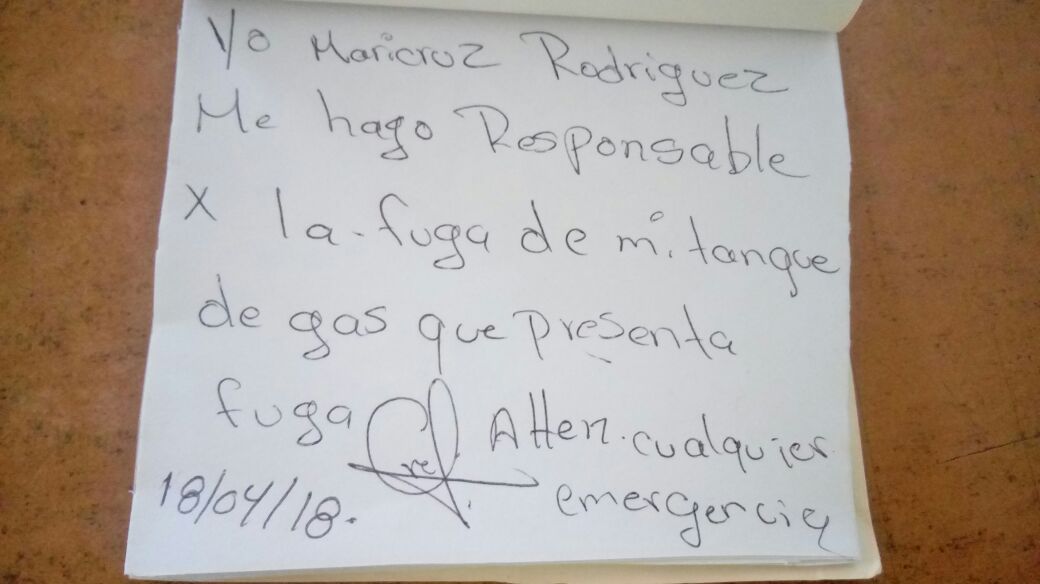 Yo Maricruz Rodriguez
Me hago Responsable
X la fuga de mi tanque
de gas que presenta
fuga Atten. cualquier
18/04/18. emergencia